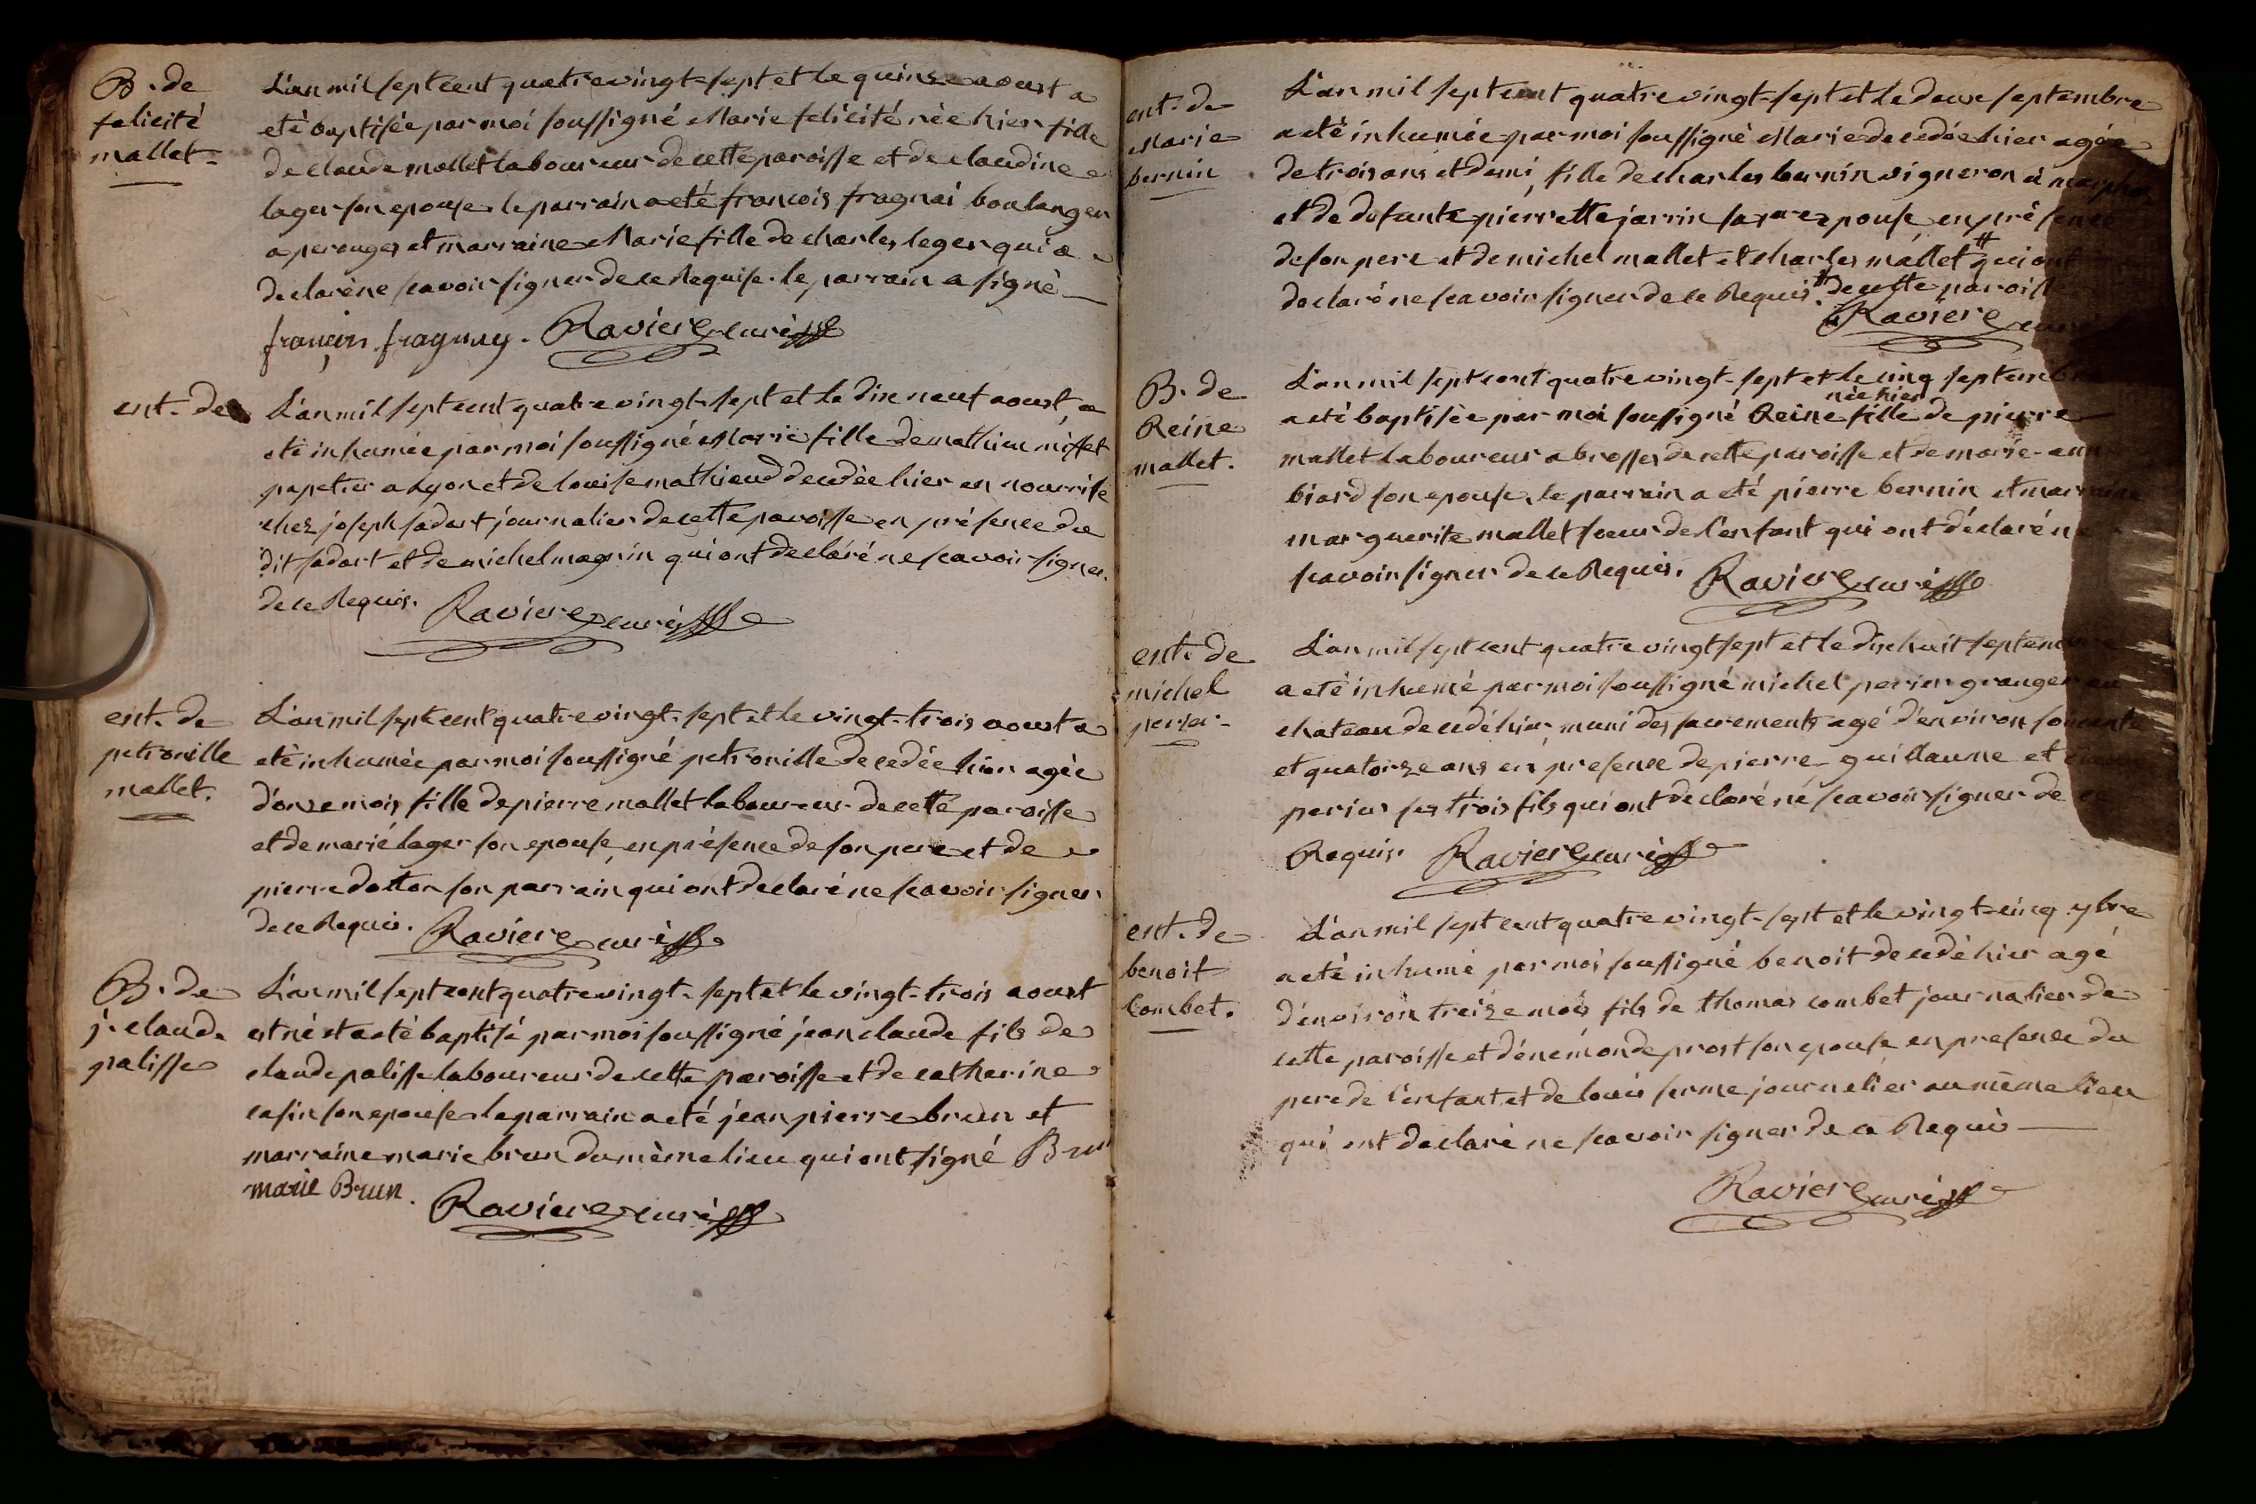 B. de
felicité
mallet
L'an mil sept cent quatre vingt-sept et le quinze aoust a
eté baptisée par moi soussigné Marie felicité née hier fille
de claude mallet laboureur de cette paroisse et de claudine
lager son epouse le parrain a eté françois fragnai boulanger
a perouges et marraine Marie fille de charles leger qui a
declaré ne scavoir signer de ce Requise. le parrain a signé
françois fragnay. Raviere curé
ent. de
L'an mil sept cent quatre vingt-sept et le dix neuf aoust a
eté inhumée par moi soussigné Marie fille de mathieu
papetier a Lyon et de louise mathieud decedée hier en nourrise
chez joseph sadart journalier de cette paroisse en présence du
dit sadart et de michel magnin qui ont declaré ne scavoir signer
de ce Requis. Raviere curé
ent. de
petronille
mallet.
L'an mil sept cent quatre vingt-sept et le vingt-trois aoust a
eté inhumée par moi soussigné petronille decedée hier agée
d'onze mois fille de pierre mallet laboureur de cette paroisse
et de marie lager son epouse, en présence de son pere et de
pierre son parrain qui ont declaré ne scavoir signer
de ce Requis. Raviere curé
B. de
j. claude
palisse
L'an mil sept cent quatre vingt-sept et le vingt-trois aoust
est né et a eté baptisé par moi soussigné jean claude fils de
claude palisse laboureur de cette paroisse et de catherine
casin son epouse le parrain a eté jean pierre brun et
marraine marie brun du même lieu qui ont signé Brun
marie Brun. Raviere curé
ent. de
Marie
bernin
L'an mil sept cent quatre vingt-sept et le deux septembre
a eté inhumée par moi soussigné Marie decedée hier agée
de trois ans et demi, fille de charles bernin vigneron a
et de defunte pierrette jarrin sa epouse en présence
de son pere et de michel mallet et charles mallet # qui ont
declaré ne scavoir signer de ce Requis. # de cette paroisse
Raviere curé
B. de
Reine
mallet.
L'an mil sept cent quatre vingt-sept et le cinq septembre
née hier
a eté baptisée par moi soussigné Reine fille de pierre
mallet laboureur a brosses de cette paroisse et de marie-ann
biard son epouse, le parrain a eté pierre bernin et marraine
marguerite mallet soeur de l'enfant qui ont déclaré ne
scavoir signer de ce Requis. Raviere curé
ent. de
michel
perier
L'an mil sept cent quatre vingt-sept et le dix huit septembre
a eté inhumé par moi soussigné michel perier granger au
chateau decedé hier, muni des sacrements agé d'environ soixante
et quatorze ans en presence de pierre guillaume et
perier ses trois fils qui ont declaré né scavoir signer de
Requis. Raviere curé
ent. de
benoit
Combet.
L'an mil sept cent quatre vingt-sept et le vingt-cinq 7bre
a eté inhumé par moi soussigné benoit decedé hier agé
d'environ treize mois fils de thomas combet journalier de
cette paroisse et d'énemonde prost son epouse en presence du
pere de l'enfant et de louis ferme journalier au même lieu
qui ont declaré ne scavoir signer de ce Requis
Raviere curé